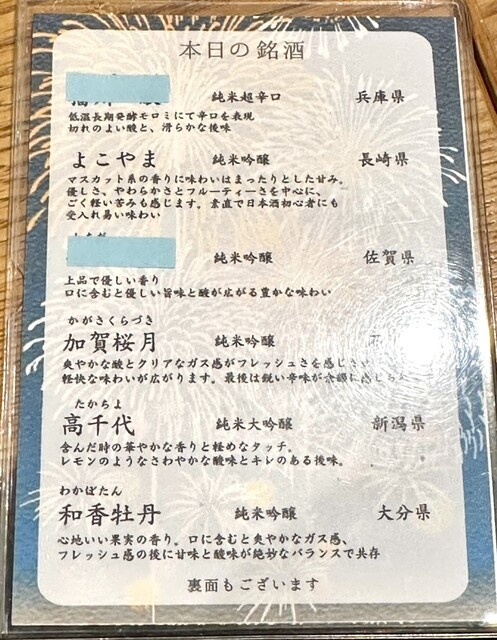 本日の銘酒
純米超辛口 兵庫県
低温長期発酵モロミにて辛口を表現
切れのよい酸と、滑らかな後味
よこやま 純米吟醸 長崎県
マスカット系の香りに味わいはまったりとした甘み。
優しさ、やわらかさとフルーティーさを中心に、
ごく軽い苦みも感じます。素直で日本酒初心者にも
受入れ易い味わい
純米吟醸 佐賀県
上品で優しい香り
口に含むと優しい旨味と酸が広がる豊かな味わい
かがさくらづき
加賀桜月 純米吟醸
爽やかな酸とクリアなガス感がフレッシュさを感じさせ
軽快な味わいが広がります。最後は鋭い辛味が余韻に感じら
たかちよ
高千代 純米大吟醸 新潟県
含んだ時の華やかな香りと軽めなタッチ。
レモンのようなさわやかな酸味とキレのある後味。
わかぼたん
和香牡丹 純米吟醸 大分県
心地いい果実の香り。口に含むと爽やかなガス感、
フレッシュ感の後に甘味と酸味が絶妙なバランスで共存
裏面もございます